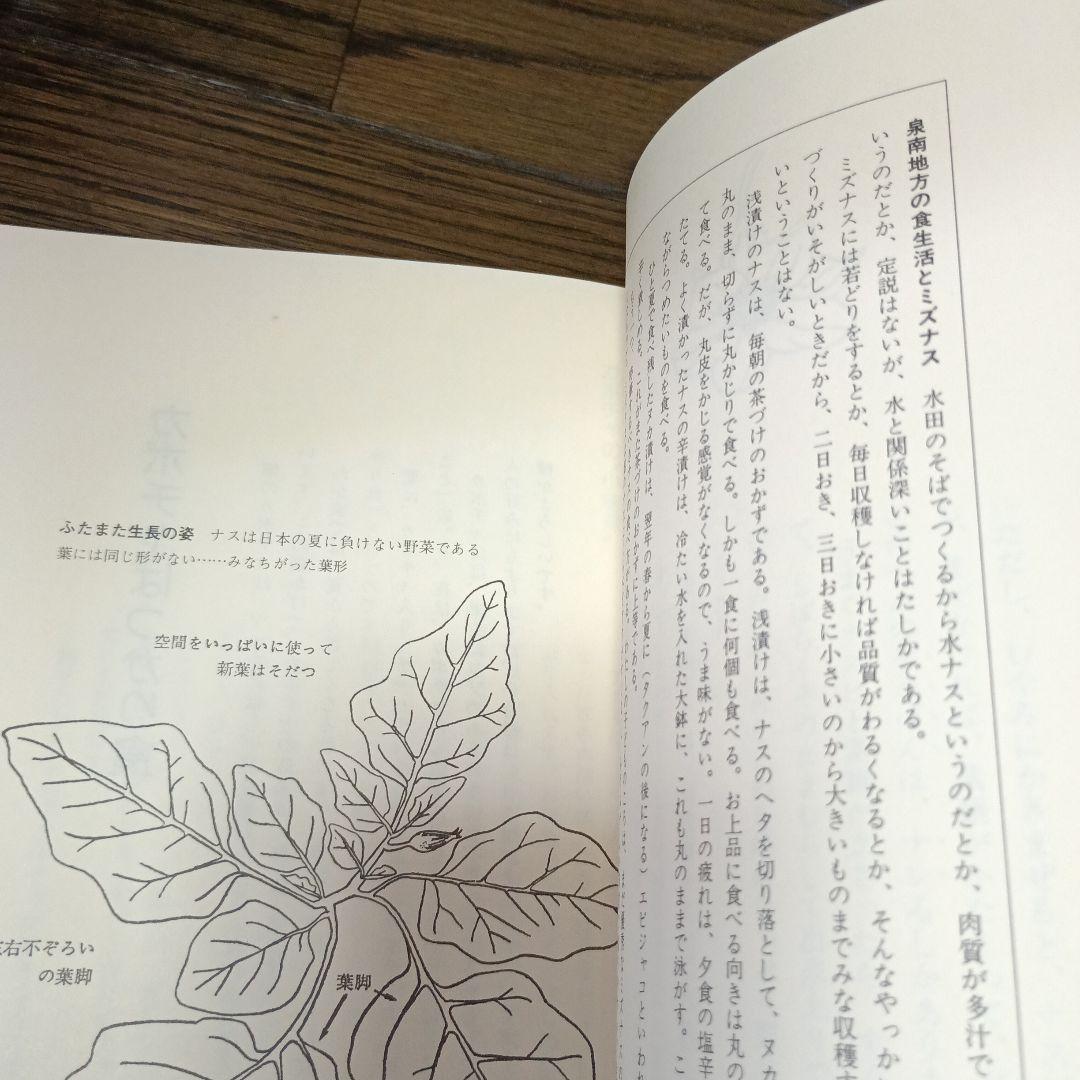 泉南地方の食生活とミズナス　水田のそばでつくるから水ナスというのだとか、肉質が多汁で
いうのだとか、定説はないが、水と関係深いことはたしかである。
ミズナスには若どりをするとか、毎日収穫しなければ品質がわるくなるとか、そんなやっか
づくりがいそがしいときだから、二日おき、三日おきに小さいのから大きいものまでみな収穫す
いということはない。
浅漬けのナスは、毎朝の茶づけのおかずである。浅漬けは、ナスのヘタを切り落として、ヌカ
丸のまま、切らずに丸かじりで食べる。しかも一食に何個も食べる。お上品に食べる向きは丸の
て食べる。だが、丸皮をかじる感覚がなくなるので、うま味がない。一日の疲れは、夕食の塩辛
たてる。よく漬かったナスの辛漬けは、冷たい水を入れた大鉢に、これも丸のままで泳がす。こ
ながらつめたいものを食べる。
ひと夏で食べ残したヌカ漬けは、翌年の春から夏に（タクアンの後になる）エビジャコといわれ
これがまた茶づけのおかずに上等である。
ふたまた生長の姿　ナスは日本の夏に負けない野菜である
葉には同じ形がない……みなちがった葉形
空間をいっぱいに使って
新葉はそだつ
右不ぞろい
の葉脚
葉脚